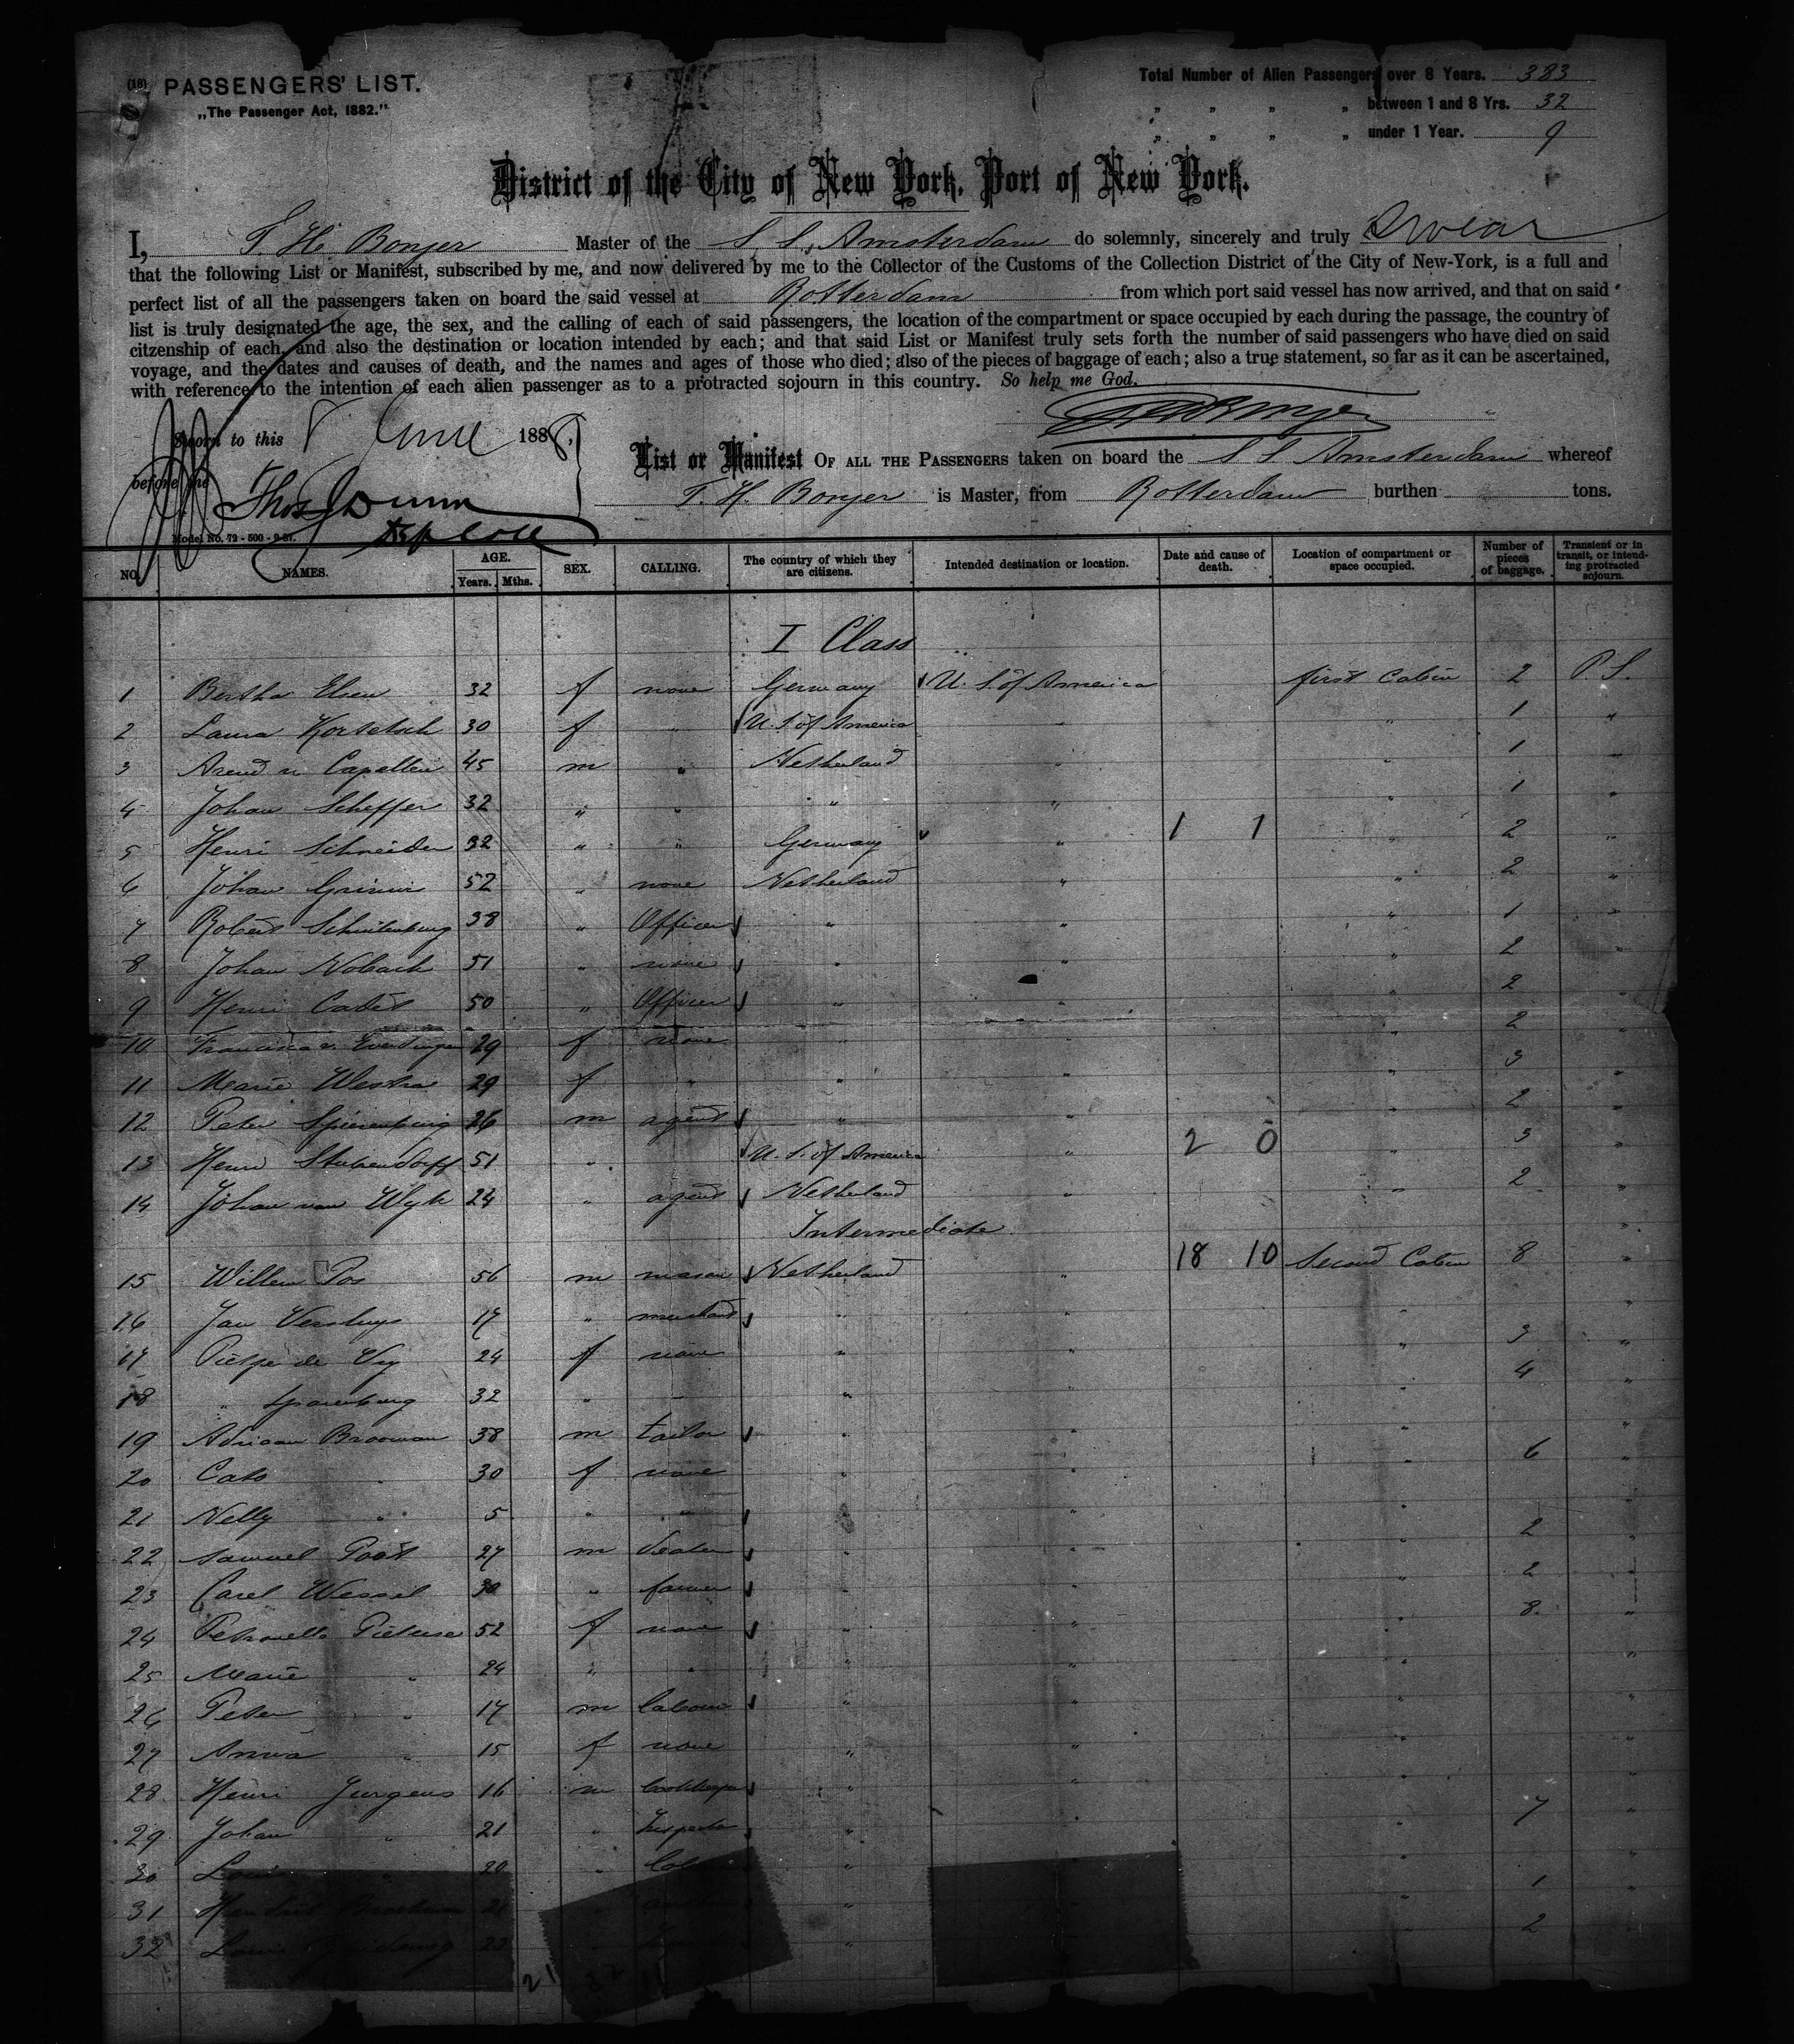 (18) PASSENGERS' LIST.
„The Passenger Act, 1882."
Total Number of Alien Passengers over 8 Years. 383
„ „ „ „ between 1 and 8 Yrs. 32
„ „ „ „ under 1 Year. 9
District of the City of New York, Port of New York.
I, T. H. Bonjer Master of the S. S. Amsterdam do solemnly, sincerely and truly Swear
that the following List or Manifest, subscribed by me, and now delivered by me to the Collector of the Customs of the Collection District of the City of New-York, is a full and
perfect list of all the passengers taken on board the said vessel at Rotterdam from which port said vessel has now arrived, and that on said
list is truly designated the age, the sex, and the calling of each of said passengers, the location of the compartment or space occupied by each during the passage, the country of
citzenship of each, and also the destination or location intended by each; and that said List or Manifest truly sets forth the number of said passengers who have died on said
voyage, and the dates and causes of death, and the names and ages of those who died; also of the pieces of baggage of each; also a true statement, so far as it can be ascertained,
with reference to the intention of each alien passenger as to a protracted sojourn in this country. So help me God.
Sworn to this 8 June 1888,
List or Manifest OF ALL THE PASSENGERS taken on board the S S Amsterdam whereof
before me
T. H. Bonjer is Master, from Rotterdam burthen tons.
Thos Dunn
Dep Coll
Model No. 72 - 500 - 9-87.
NO. NAMES. AGE. Years. Mths. SEX. CALLING. The country of which they are citizens. Intended destination or location. Date and cause of death. Location of compartment or space occupied. Number of pieces of baggage. Transient or in transit, or intending protracted sojourn.
I Class
1 Bertha 32 f none Germany U. S. of America first Cabin 2 P. S.
2 Laura 30 f " U. S. of America " " 1 "
3 Arend v. Capellen 45 m " Netherland " " 1 "
4 Johan Scheffer 32 " " " " " 1 "
5 Henri Schneider 32 " " Germany " 1 1 " 2 "
6 Johan 52 " none Netherland " " 2 "
7 Robert 38 " Officer " " " 1 "
8 Johan 51 " none " " " 2 "
9 Henri Cadet 50 " Officer " " " 2 "
10 Francisca v. Everdingen 29 f none " " " 2 "
11 Marie Westra 29 f " " " " 3 "
12 Peter 26 m agent " " " 2 "
13 Henri 51 " U. S. of America " 2 0 " 3 "
14 Johan van Wyk 24 " agent Netherland " " 2 "
Intermediate
15 Willem Pos 56 m mason Netherland " 18 10 Second Cabin 8 "
16 Jan Versluys 17 " " " " "
17 de 24 f none " " " 3 "
18 " 32 " " " " " 4 "
19 Adriaan Brooman 38 m tailor " " " "
20 Cato " 30 f none " " " 6 "
21 Nelly " 5 " " " " " "
22 Samuel 27 m dealer " " " 2 "
23 Carel Wessel 30 " farmer " " " 2 "
24 Petronella Pieterse 52 f none " " " 8 "
25 Marie " 24 " " " " " "
26 Peter " 17 m labour " " " "
27 Anna " 15 f none " " " "
28 Henri Jurgens 16 m bookkeeper " " " "
29 Johan " 21 " " " " 7 "
30 20 " " " " "
31 Hendrik 21 " " 1 "
32 23 " " 2 "
21